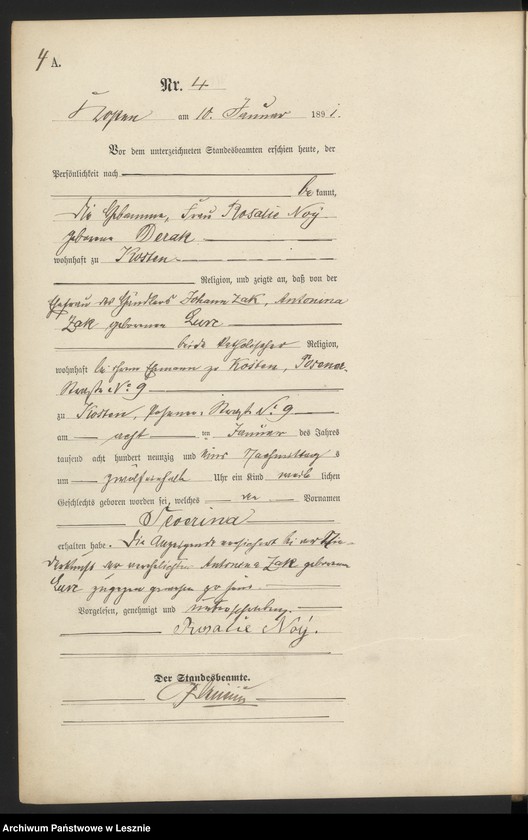 4 A.
Nr. 4
Kosten am 10. Januar 1891.
Vor dem unterzeichneten Standesbeamten erschien heute, der
Persönlichkeit nach
be kannt,
die Hebamme, Frau Rosalie Noÿ
geborene Derak
wohnhaft zu Kosten
Religion, und zeigte an, daß von der
Ehefrau des Händlers Johann Zak, Antonina
Zak geborenen
beide katholischer Religion,
wohnhaft bei ihrem Ehemann zu Kosten, Posener
Straße No 9
zu Kosten, Posener Straße No 9
am acht ten Januar des Jahres
tausend acht hundert neunzig und eins Nachmittag s
um zwölfeinhalb Uhr ein Kind weib lichen
Geschlechts geboren worden sei, welches den Vornamen
Severina
erhalten habe. Die Anzeigende versichert bei der Nie-
derkunft der verehelichten Antonina Zak geborenen
zugegen gewesen zu sein.
Vorgelesen, genehmigt und unterschrieben.
Rosalie Noÿ.
Der Standesbeamte.
Archiwum Państwowe w Lesznie